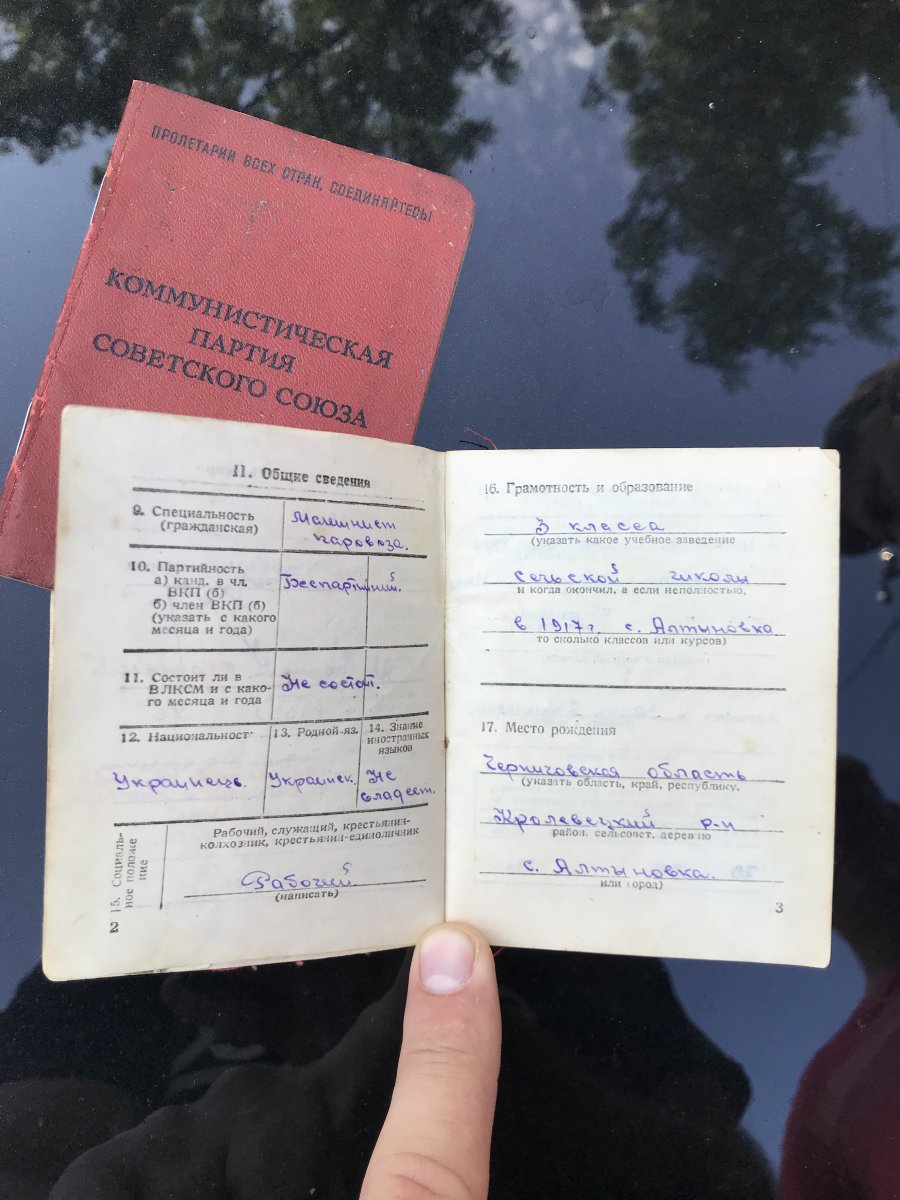 ПРОЛЕТАРИИ ВСЕХ СТРАН, СОЕДИНЯЙТЕСЬ!
КОММУНИСТИЧЕСКАЯ
ПАРТИЯ
СОВЕТСКОГО СОЮЗА
II. Общие сведения
9. Специальность
(гражданская)
Машинист
паровоза.
10. Партийность
а) канд. в чл.
ВКП (б)
б) член ВКП (б)
(указать с какого
месяца и года)
Беспартийный.
11. Состоит ли в
ВЛКСМ и с како-
го месяца и года
Не состоит.
12. Национальност
Украинець.
13. Родной яз.
Украинск.
14. Знание
иностранных
языков
Не
владеет.
15. Социаль-
ное положе
ние
Рабочий, служащий, крестьянин-
колхозник, крестьянин-единоличник
Рабочий
(написать)
2
16. Грамотность и образование
3 класса
(указать какое учебное заведение
сельской школы
и когда окончил, а если неполностью,
в 1917 г. с. Алтыновка
то сколько классов или курсов)
17. Место рождения
Черниговская область
(указать область, край, республику,
Кролевецкий р-н
район, сельсовет, деревню
с. Алтыновка.
или город)
3